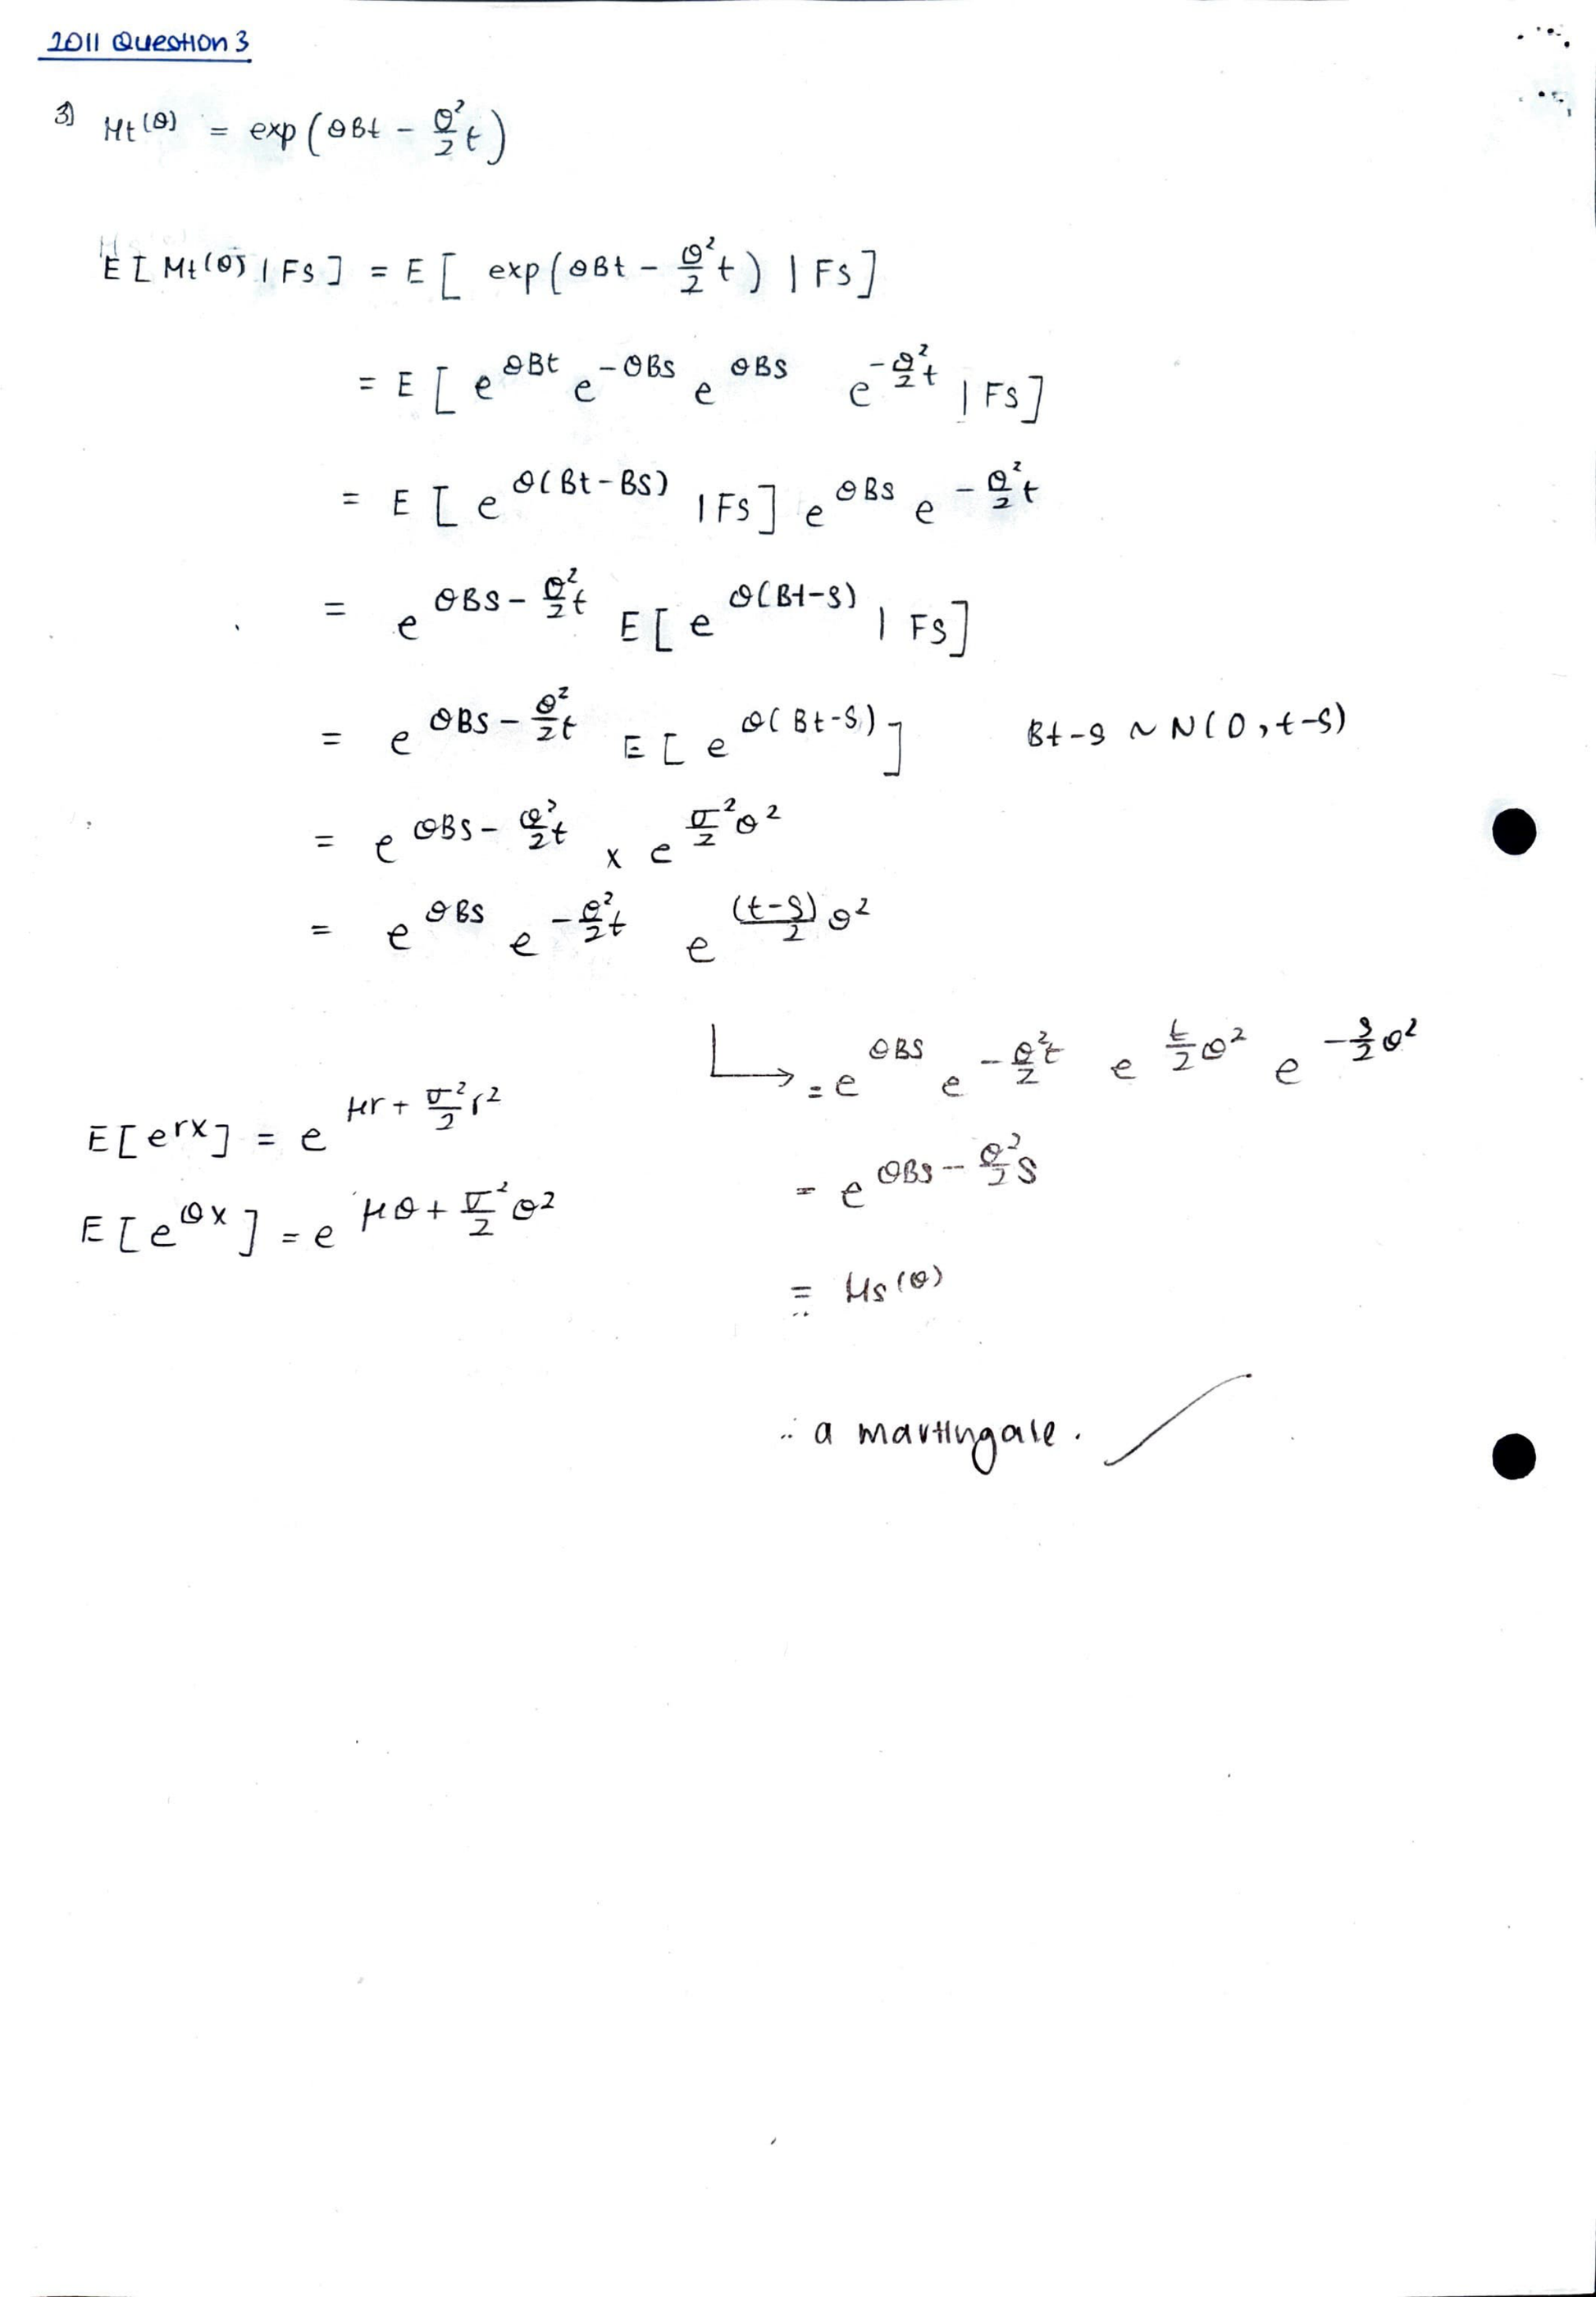 2011 Question 3
3) Mt(θ) = exp(θBt - θ²/2 t)
E[Mt(θ) | Fs] = E[ exp(θBt - θ²/2 t) | Fs]
= E[e^θBt e^-θBs e^θBs e^-θ²/2 t | Fs]
= E[e^θ(Bt-Bs) | Fs] e^θBs e^-θ²/2 t
= e^θBs - θ²/2 t E[e^θ(Bt-s) | Fs]
= e^θBs - θ²/2 t E[e^θ(Bt-s)] Bt-s ~ N(0, t-s)
= e^θBs - θ²/2 t x e^σ²/2 θ²
= e^θBs e^-θ²/2 t e^(t-s)/2 θ²
= e^θBs e^-θ²/2 t e^t/2 θ² e^-s/2 θ²
E[e^rx] = e^μr + σ²/2 r²
= e^θBs - θ²/2 s
E[e^θx] = e^μθ + σ²/2 θ²
= Ms(θ)
∴ a martingale.